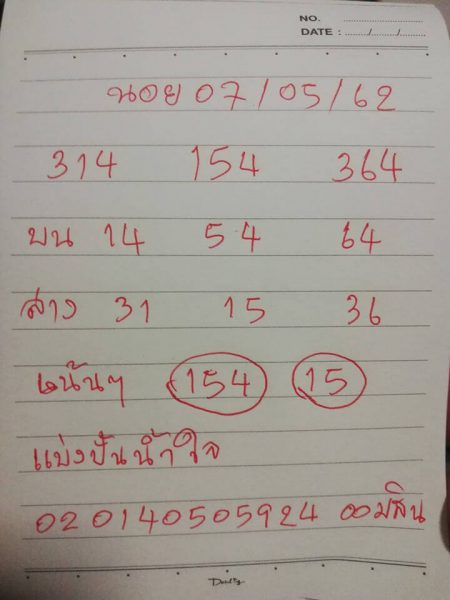 NO. ..............................
DATE : ......../......../........
นอย 07/05/62
314 154 364
บน 14 54 64
ล่าง 31 15 36
เน้นๆ 154 15
แบ่งปันน้ำใจ
020140505924 ออมสิน